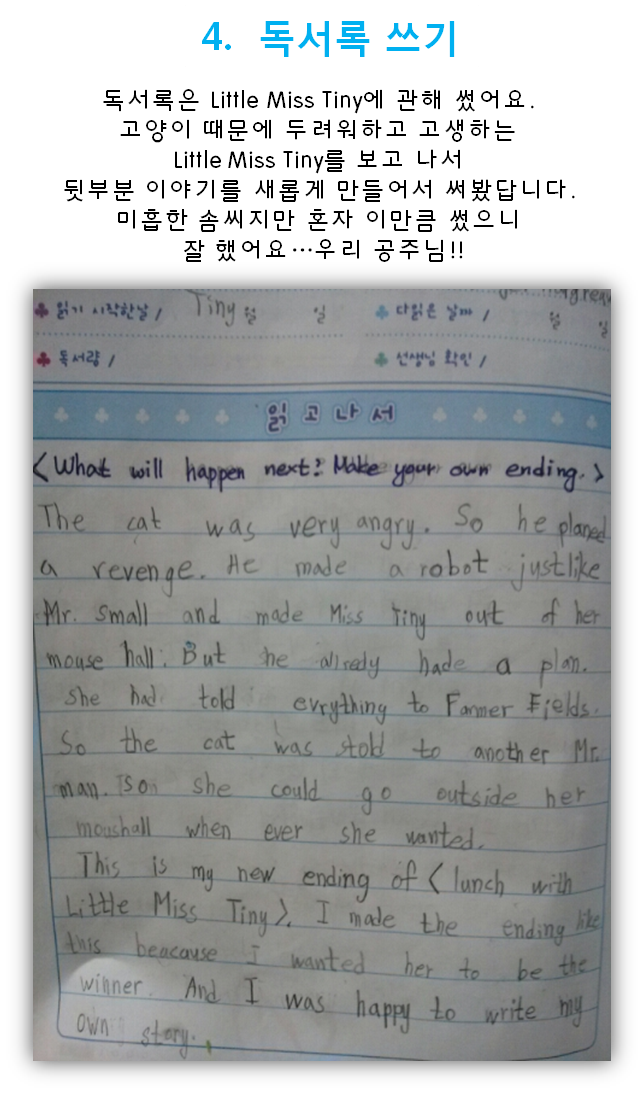 4. 독서록 쓰기
독서록은 Little Miss Tiny에 관해 썼어요.
고양이 때문에 두려워하고 고생하는
Little Miss Tiny를 보고 나서
뒷부분 이야기를 새롭게 만들어서 써봤답니다.
미흡한 솜씨지만 혼자 이만큼 썼으니
잘 했어요…우리 공주님!!
읽기 시작한날 / Tiny 월 일 다읽은 날짜 / 월 일
독서량 / 선생님 확인 /
읽고나서
<What will happen next? Make your own ending.>
The cat was very angry. So he planed
a revenge. He made a robot just like
Mr. Small and made Miss Tiny out of her
mouse hall. But he alredy hade a plan.
She had told evrything to Farmer Fields.
So the cat was stold to another Mr.
man. So she could go outside her
moushall when ever she wanted.
This is my new ending of <lunch with
Little Miss Tiny>. I made the ending like
this beacause I wanted her to be the
winner. And I was happy to write my
own story.